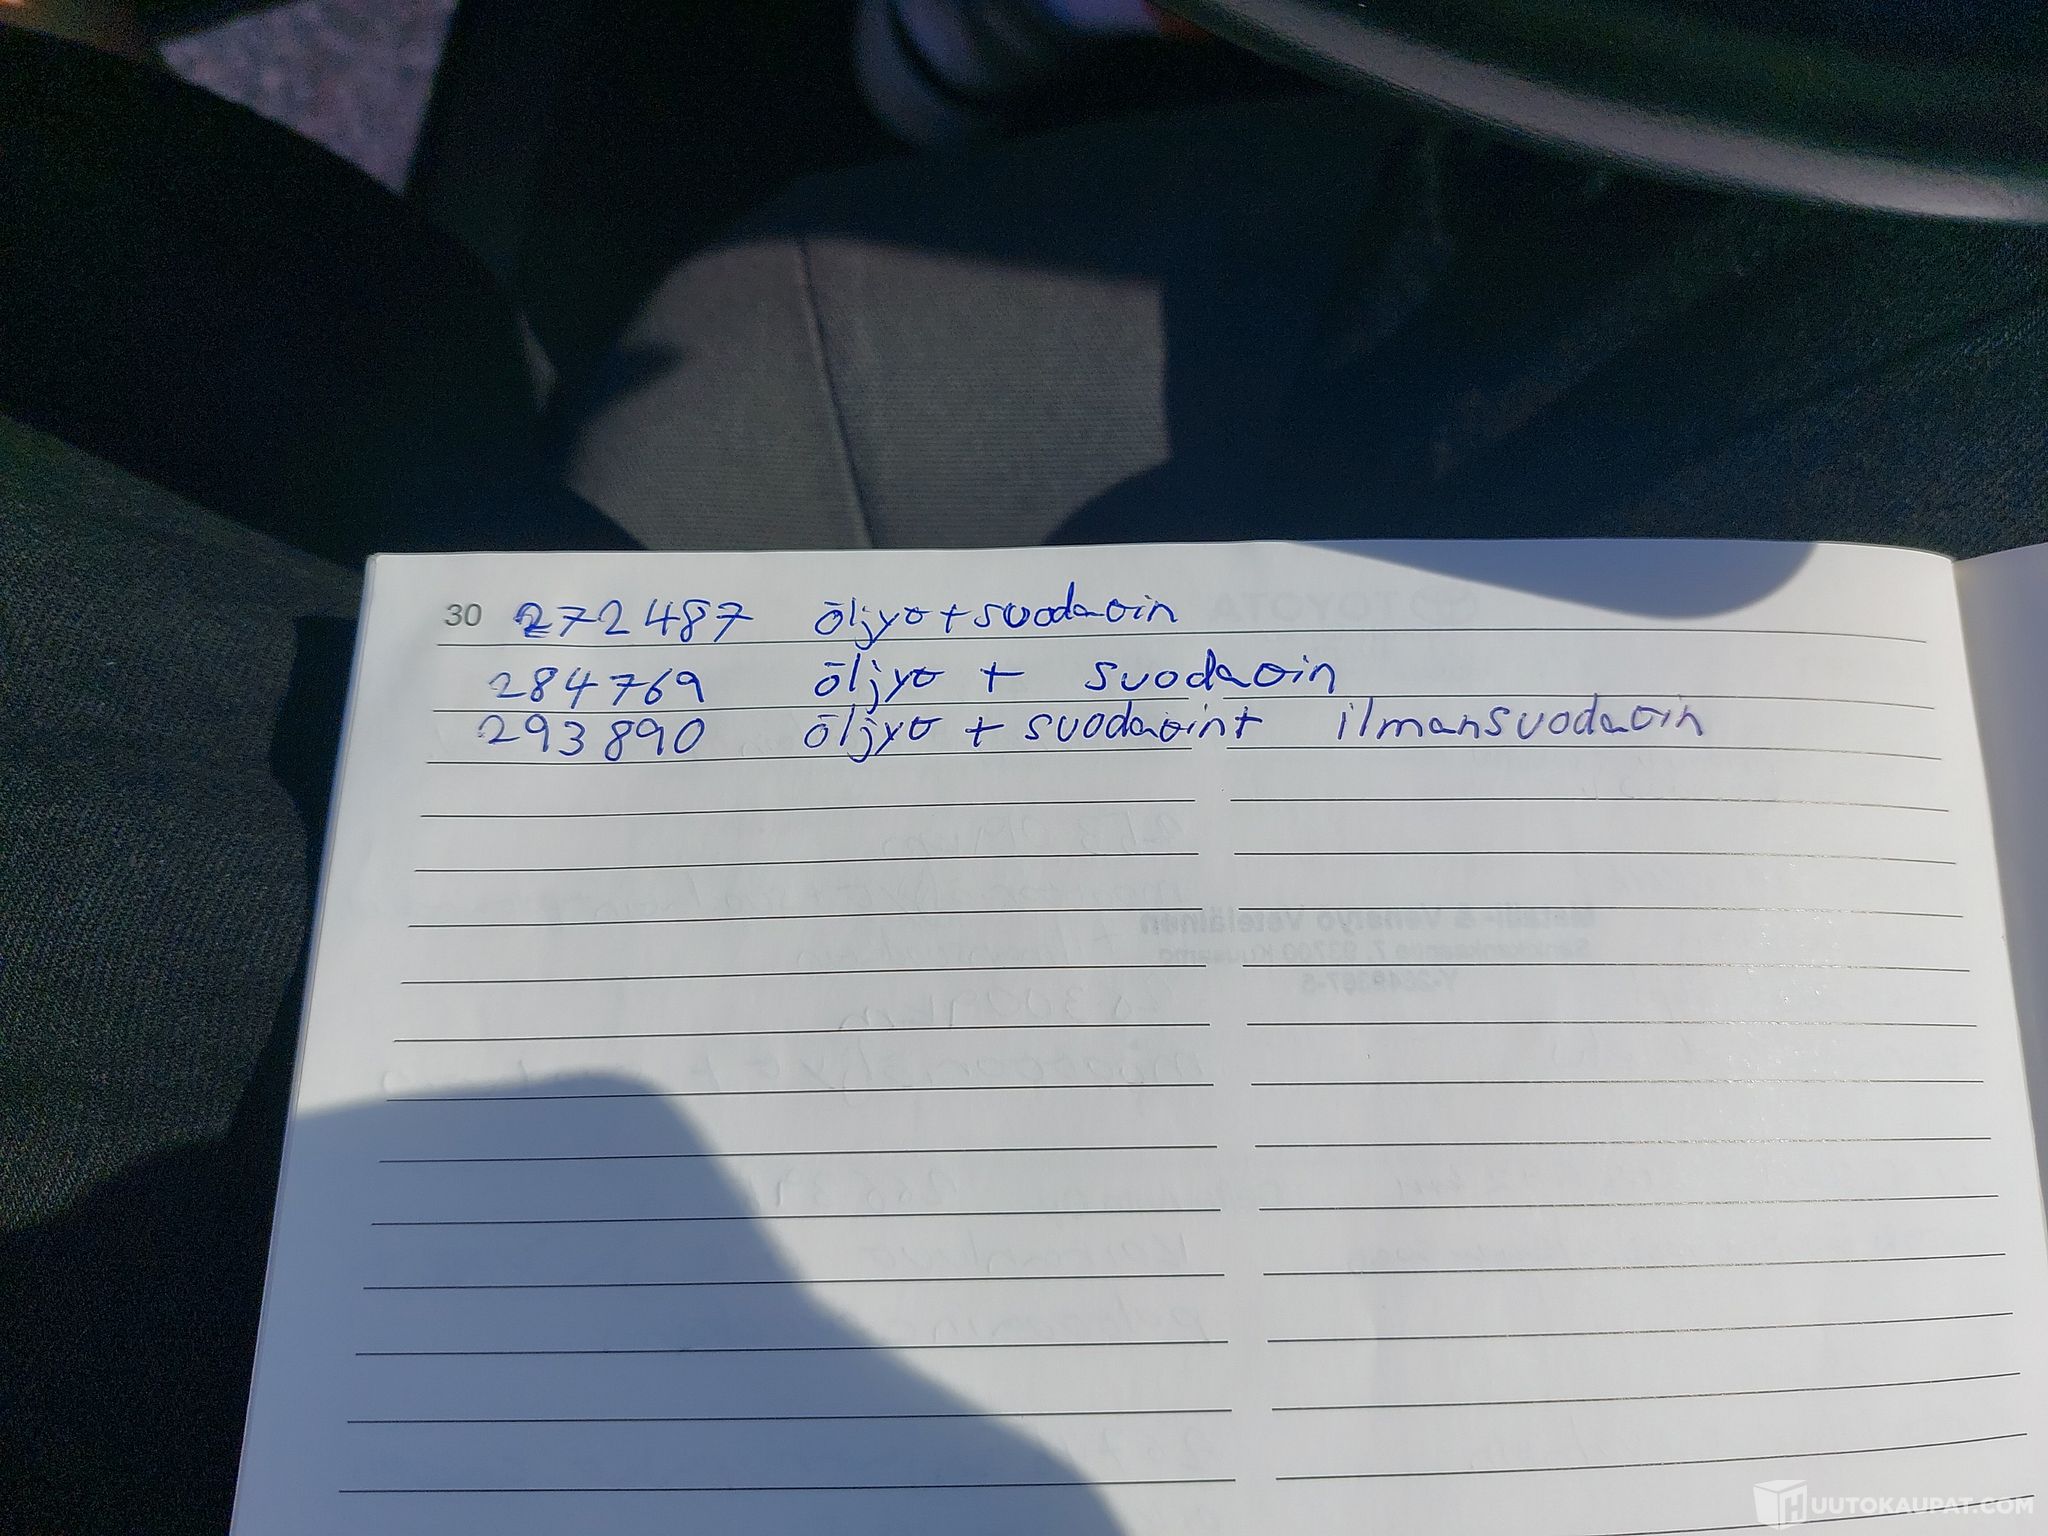 30 272487 öljyt+suodatin
284769 öljyt + suodatin
293890 öljyt + suodatin+ ilmansuodatin
HUUTOKAUPAT.COM